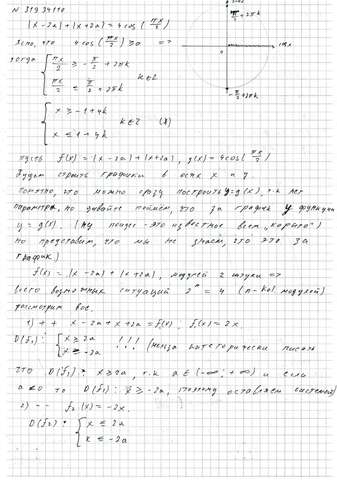 N 31934110
|x-2a|+|x+2a| = 4cos(πx/2)
sin x
cos x
-π/2+2πk
Ясно, что 4cos(πx/2) ≥ 0 =>
тогда
{ πx/2 ≥ -π/2 + 2πk
πx/2 ≤ π/2 + 2πk k∈Z
{ x ≥ -1+4k
x ≤ 1+4k k∈Z
Пусть f(x) = |x-2a|+|x+2a|, g(x) = 4cos(πx/2)
будем строить графики в осях x и y.
Понятно, что можно сразу построить y=g(x), т.к. нет
параметра, но давайте поймем, что за график у функции
y = (ну позже - это известное всем „корыто“)
но представим, что мы не знаем, что это за
график)
f(x) = |x-2a|+|x+2a|, модулей 2 штуки =>
всего возможных ситуаций 2ⁿ = 4 (n - кол. модулей)
рассмотрим все.
1) ++ x-2a+x+2a = f(x). f₁(x) = 2x.
D(f₁): { x ≥ 2a
x ≥ -2a !!! (нельзя категорически писать
что D(f₁): x ≥ 2a, т.к. a∈(-∞;+∞) и если
a<0 то D(f₁): x ≥ -2a, поэтому оставляем системой)
2) -- f₂(x) = -2x.
D(f₂): { x ≤ 2a
x ≤ -2a